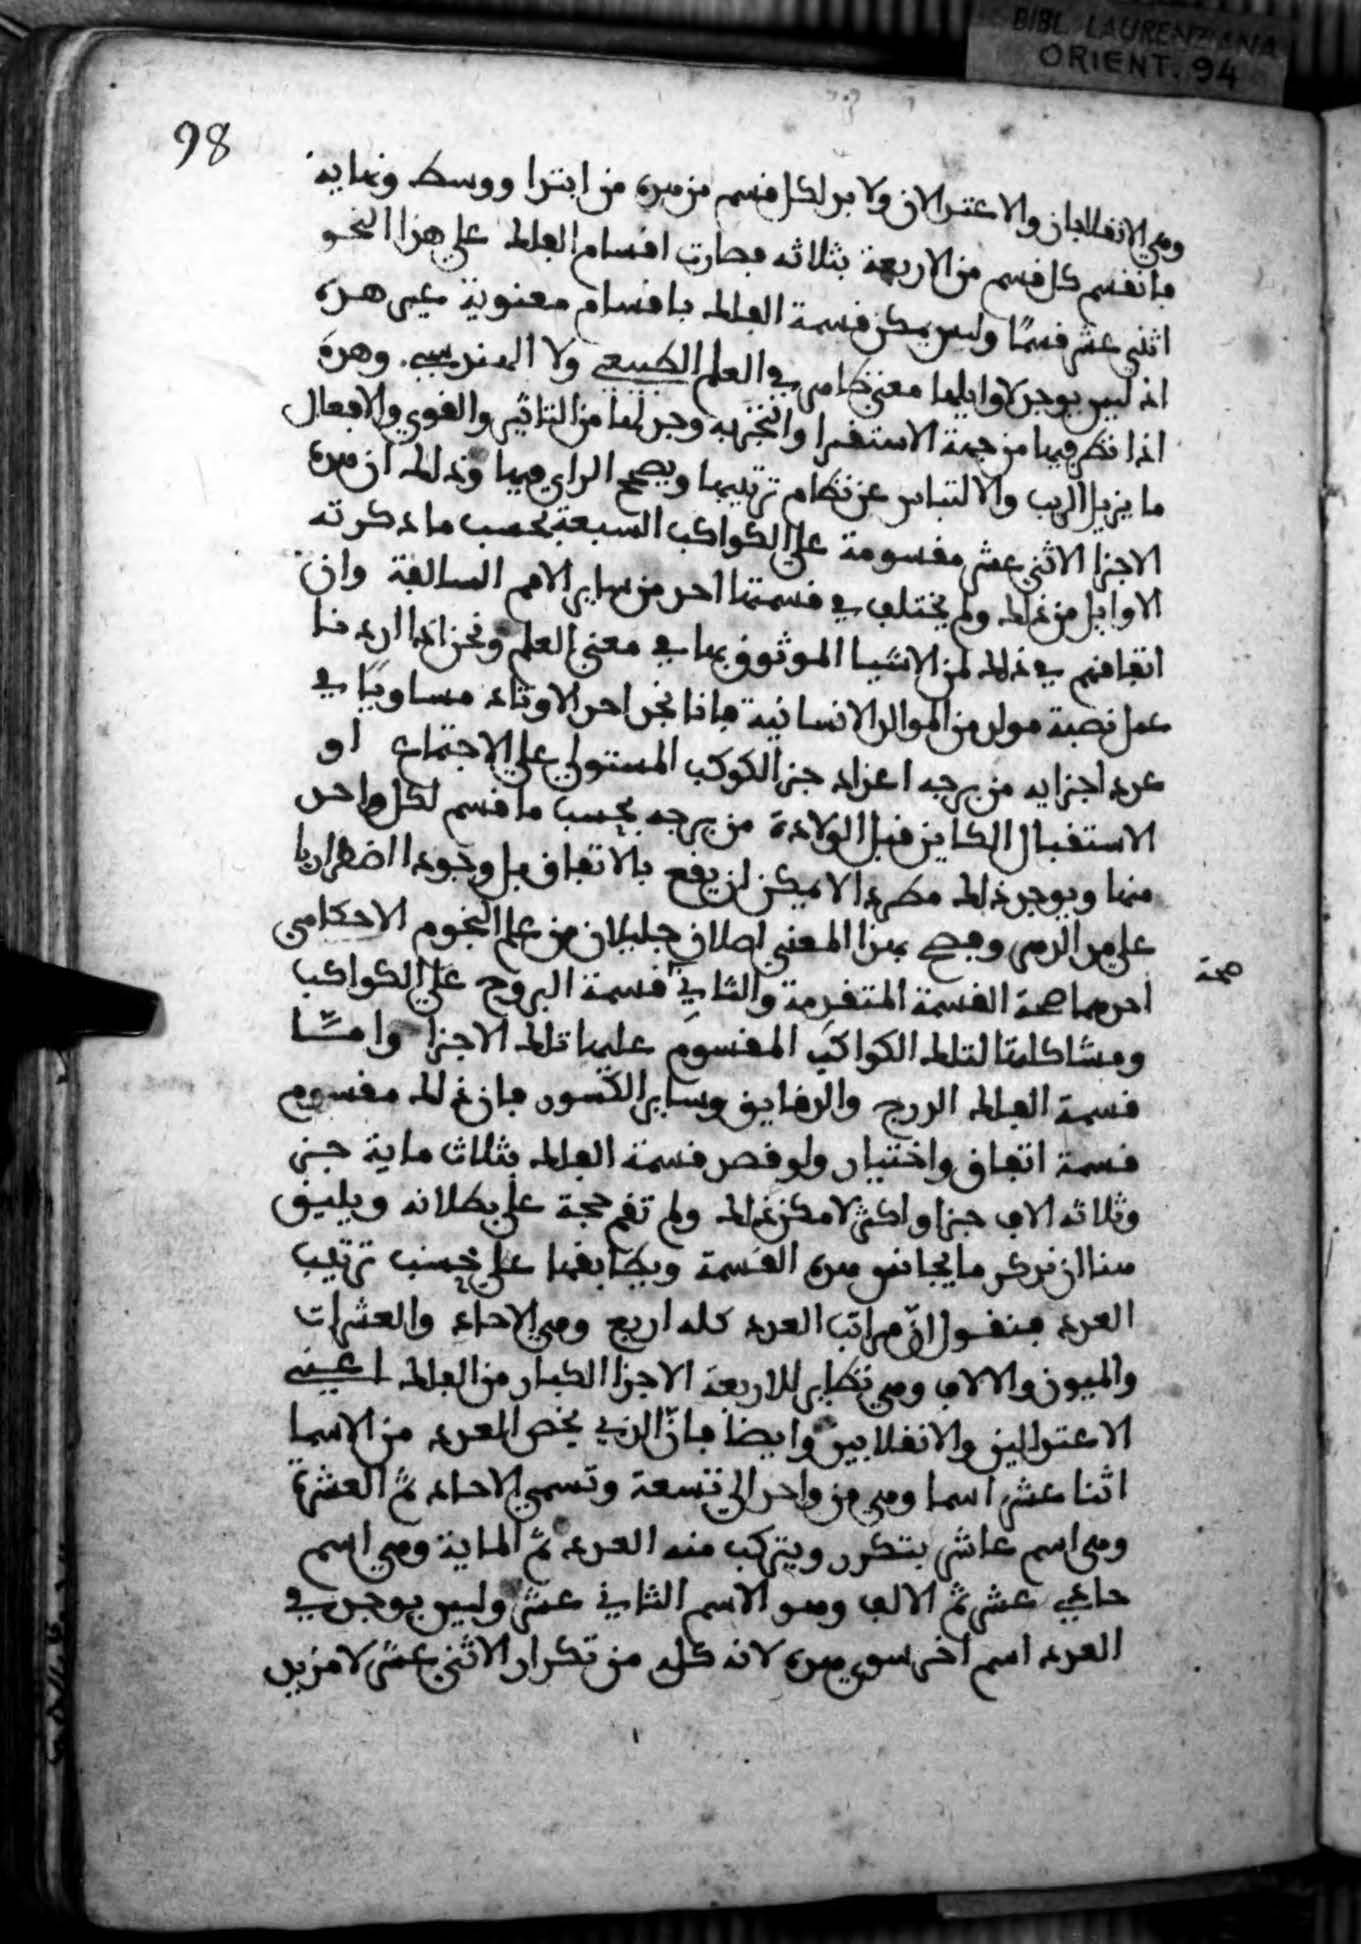 BIBL. LAURENZIANA
ORIENT. 94
98
وهي الانقلابان والاعتدالان ولا بد لكل قسم من هذه من ابتدا ووسط ونهاية
فانقسم كل قسم من الاربعة بثلاثه فصارت اقسام الفلك على هذا النحو
اثنى عشر قسمًا وليس يمكن قسمة الفلك باقسام معنوية غير هذه
اذ ليس يوجد لاوايلها معنى ظاهر في العلم الطبيعي ولا الهندسي. وهذه
اذا نظر فيها من جهة الاستقرا والتجربه وجد لها من التاثير والقوى والافعال
ما يزيل الريب والالتباس عن نظام ترتيبها ويصحح الراي فيها وذلك ان هذه
الاجزا الاثنى عشر مقسومة على الكواكب السبعة بحسب ما ذكرته
الاوايل من ذلك ولم يختلف في قسمتها احد من ساير الامم السالفة وان
اتفاقهم في ذلك لمن الاشيا الموثوق بها في معنى العلم ونحن اذا اردنا
عمل نصبة مولد من الموالد الانسانية فانا نجد احد الاوتاد مساويًا في
عدد اجزايه من برجه اعداد جز الكوكب المستولي على الاجتماع او
الاستقبال الكاين قبل الولادة من برجه بحسب ما قسم لكل واحد
منها ويوجد ذلك مطردا لا يمكن ان يقع بالاتفاق بل وجودا اضطراريا
على مر الدهر وصح بهذا المعنى اصلان جليلان من علم النجوم الاحكامي
احدهما صحة القسمة المتقدمة والثاني قسمة البروج على الكواكب
صحة
ومشاكلتها لتلك الكواكب المقسوم عليها تلك الاجزا وامّا
قسمة الفلك الدرج والدقايق وساير الكسور فان ذلك مقسوم
قسمة اتفاق واختيار ولو قصد قسمة الفلك بثلاث ماية جز
وثلاثه الاف جزا واكثر لامكن ذلك ولم تقم حجة على بطلانه ويليق
هنا ان نذكر ما يجانس هذه القسمة ويطابقها على حسب ترتيب
العدد فنقول انّ مراتب العدد كله اربع وهي الاحاد والعشرات
والميون والالاف وهي نظاير للاربعة الاجزا الكبار من الفلك اعني
الاعتدالين والانقلابين وايضا فانّ الذي يخص العدد من الاسما
اثنا عشر اسما وهي من واحد الى تسعة وتسمي الاحاد ثم العشرة
وهي اسم عاشر يتكرر ويتركب منه العدد ثم الماية وهي اسم
حادي عشر ثم الالف وهو الاسم الثاني عشر وليس يوجد في
العدد اسم اخر سوى هذه لانه كله من تكرار الاثنى عشر لا مزيد